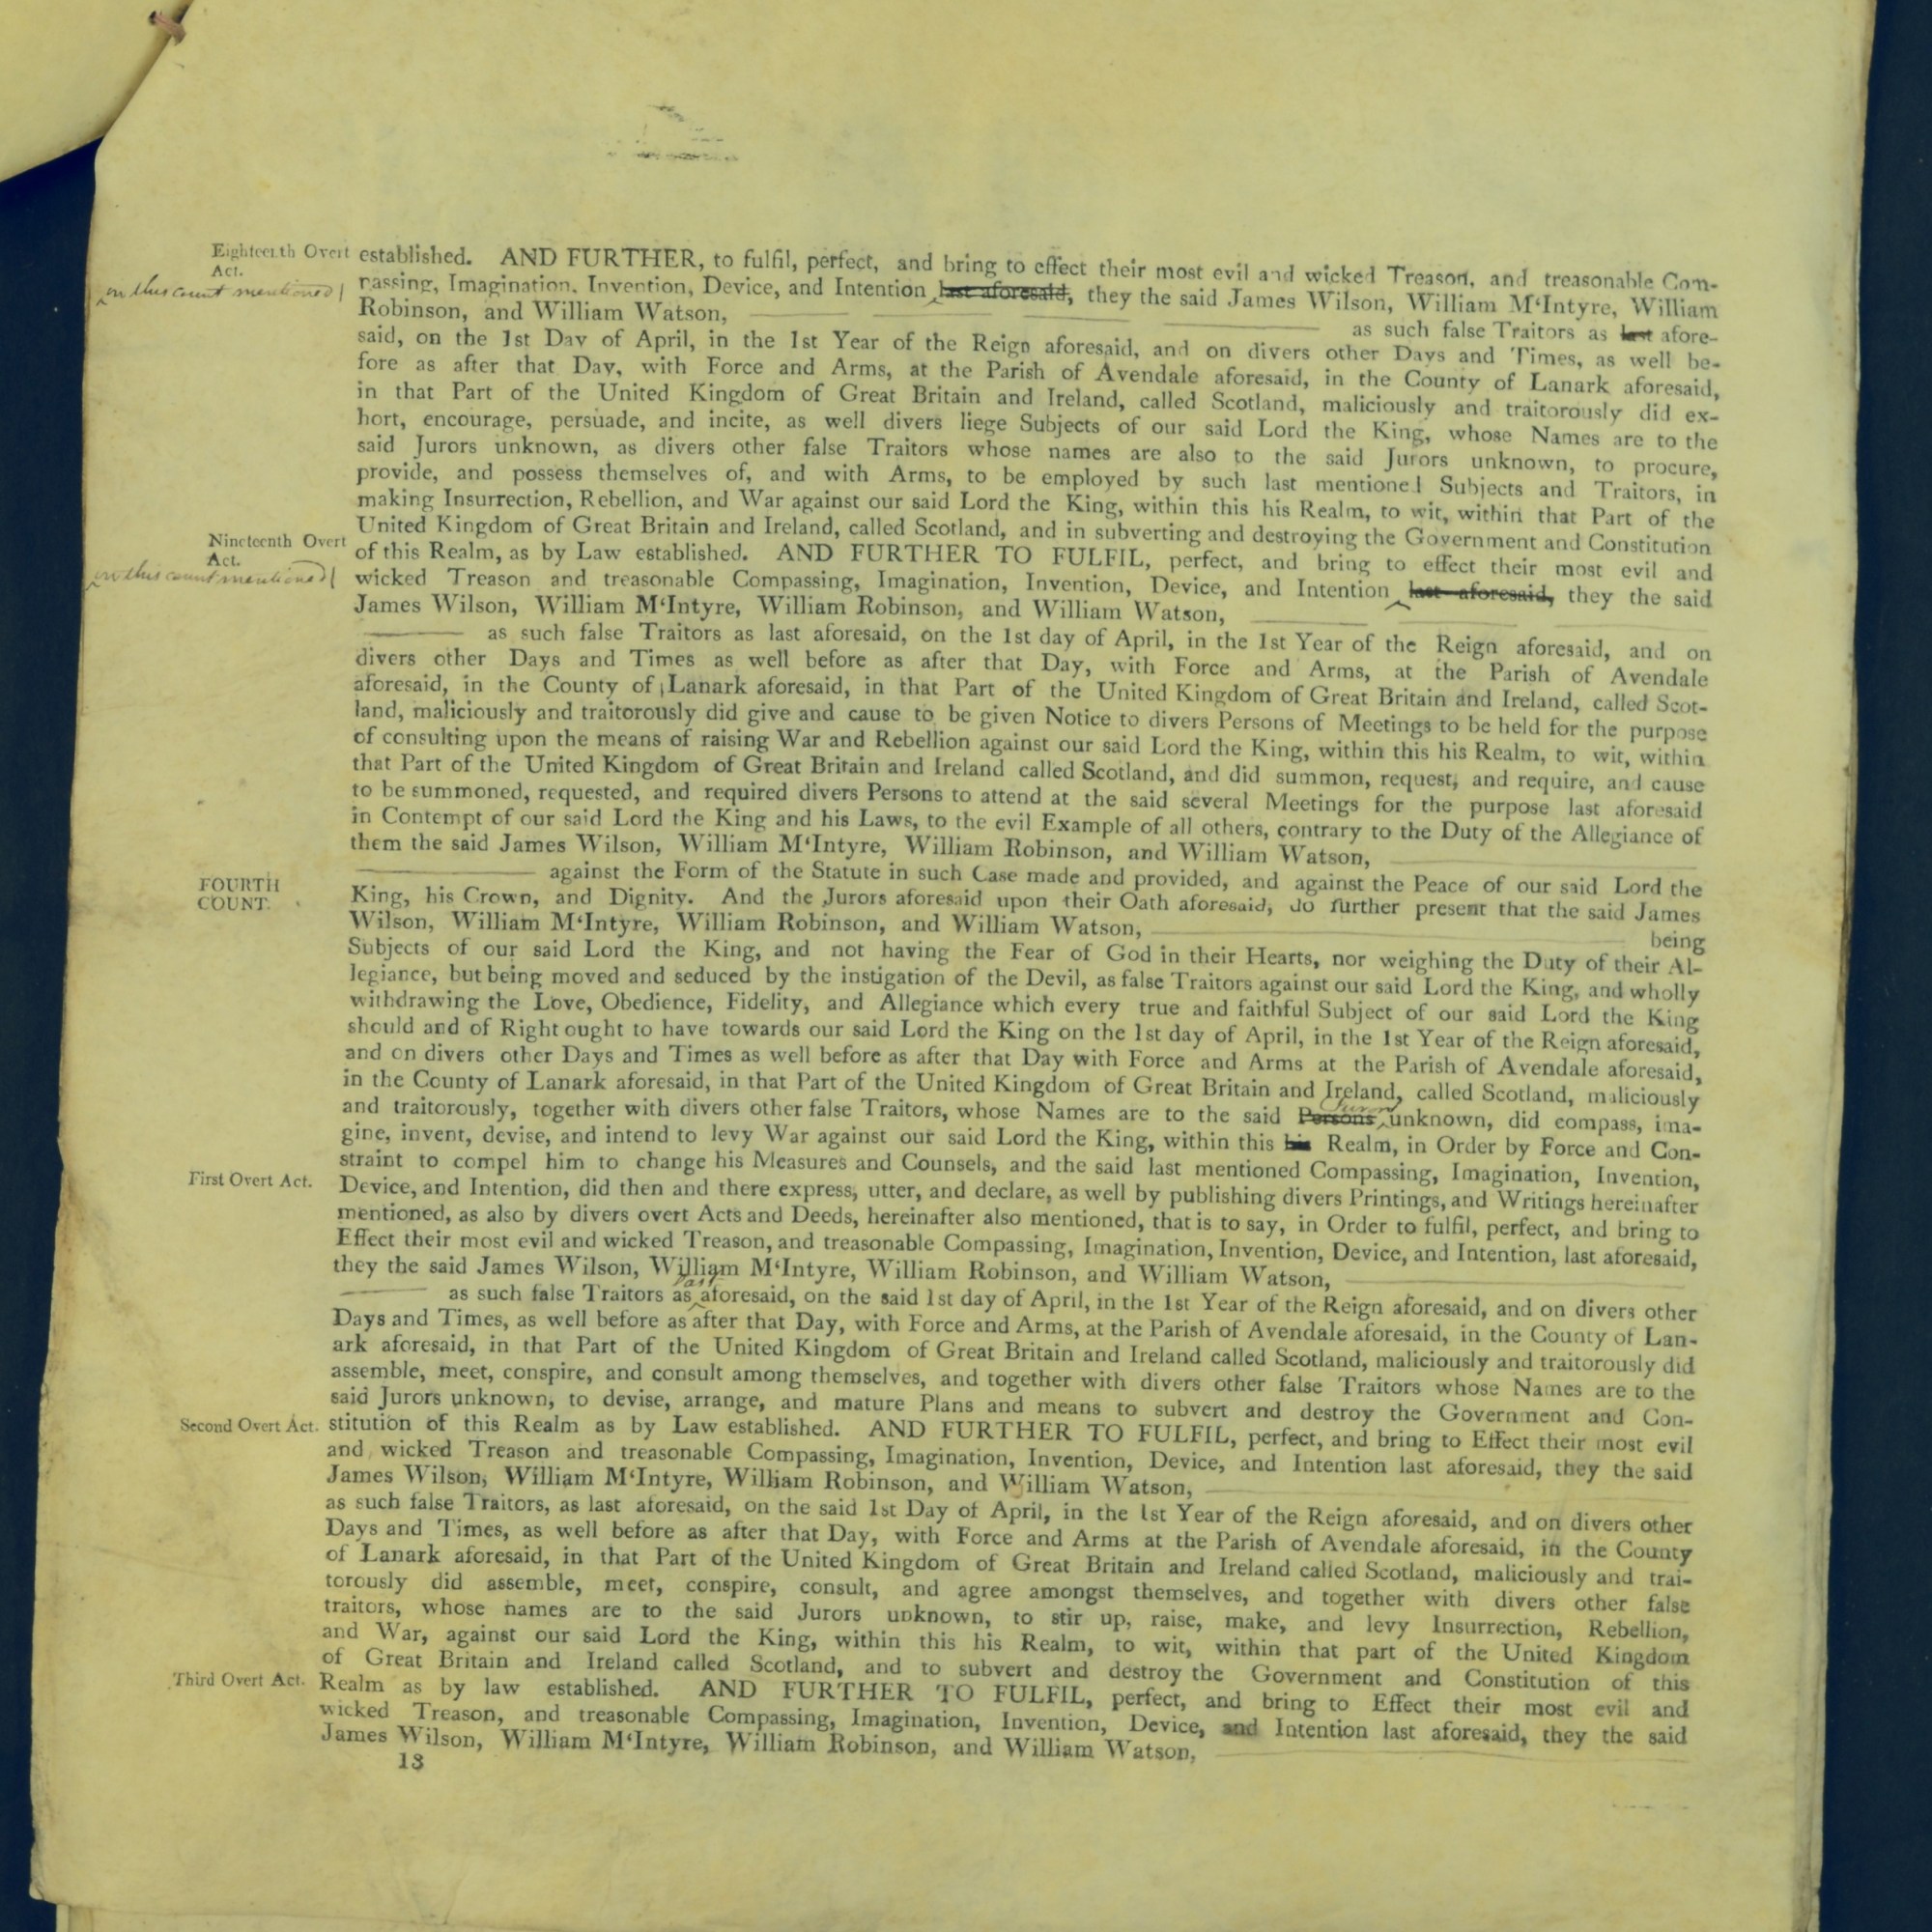 Eighteenth Overt Act.
in this count mentioned
established. AND FURTHER, to fulfil, perfect, and bring to effect their most evil and wicked Treason, and treasonable Com-
passing, Imagination, Invention, Device, and Intention last aforesaid, they the said James Wilson, William M‘Intyre, William
Robinson, and William Watson,
as such false Traitors as last afore-
said, on the 1st Day of April, in the 1st Year of the Reign aforesaid, and on divers other Days and Times, as well be-
fore as after that Day, with Force and Arms, at the Parish of Avendale aforesaid, in the County of Lanark aforesaid,
in that Part of the United Kingdom of Great Britain and Ireland, called Scotland, maliciously and traitorously did ex-
hort, encourage, persuade, and incite, as well divers liege Subjects of our said Lord the King, whose Names are to the
said Jurors unknown, as divers other false Traitors whose names are also to the said Jurors unknown, to procure,
provide, and possess themselves of, and with Arms, to be employed by such last mentioned Subjects and Traitors, in
making Insurrection, Rebellion, and War against our said Lord the King, within this his Realm, to wit, within that Part of the
United Kingdom of Great Britain and Ireland, called Scotland, and in subverting and destroying the Government and Constitution
Nineteenth Overt Act.
in this count mentioned
of this Realm, as by Law established. AND FURTHER TO FULFIL, perfect, and bring to effect their most evil and
wicked Treason and treasonable Compassing, Imagination, Invention, Device, and Intention last aforesaid, they the said
James Wilson, William M‘Intyre, William Robinson, and William Watson,
as such false Traitors as last aforesaid, on the 1st day of April, in the 1st Year of the Reign aforesaid, and on
divers other Days and Times as well before as after that Day, with Force and Arms, at the Parish of Avendale
aforesaid, in the County of Lanark aforesaid, in that Part of the United Kingdom of Great Britain and Ireland, called Scot-
land, maliciously and traitorously did give and cause to be given Notice to divers Persons of Meetings to be held for the purpose
of consulting upon the means of raising War and Rebellion against our said Lord the King, within this his Realm, to wit, within
that Part of the United Kingdom of Great Britain and Ireland called Scotland, and did summon, request, and require, and cause
to be summoned, requested, and required divers Persons to attend at the said several Meetings for the purpose last aforesaid
in Contempt of our said Lord the King and his Laws, to the evil Example of all others, contrary to the Duty of the Allegiance of
them the said James Wilson, William M‘Intyre, William Robinson, and William Watson,
against the Form of the Statute in such Case made and provided, and against the Peace of our said Lord the
FOURTH COUNT.
King, his Crown, and Dignity. And the Jurors aforesaid upon their Oath aforesaid, do further present that the said James
Wilson, William M‘Intyre, William Robinson, and William Watson,
being
Subjects of our said Lord the King, and not having the Fear of God in their Hearts, nor weighing the Duty of their Al-
legiance, but being moved and seduced by the instigation of the Devil, as false Traitors against our said Lord the King, and wholly
withdrawing the Love, Obedience, Fidelity, and Allegiance which every true and faithful Subject of our said Lord the King
should and of Right ought to have towards our said Lord the King on the 1st day of April, in the 1st Year of the Reign aforesaid,
and on divers other Days and Times as well before as after that Day with Force and Arms at the Parish of Avendale aforesaid,
in the County of Lanark aforesaid, in that Part of the United Kingdom of Great Britain and Ireland, called Scotland, maliciously
and traitorously, together with divers other false Traitors, whose Names are to the said Persons Jurors unknown, did compass, ima-
gine, invent, devise, and intend to levy War against our said Lord the King, within this his Realm, in Order by Force and Con-
straint to compel him to change his Measures and Counsels, and the said last mentioned Compassing, Imagination, Invention,
First Overt Act.
Device, and Intention, did then and there express, utter, and declare, as well by publishing divers Printings, and Writings hereinafter
mentioned, as also by divers overt Acts and Deeds, hereinafter also mentioned, that is to say, in Order to fulfil, perfect, and bring to
Effect their most evil and wicked Treason, and treasonable Compassing, Imagination, Invention, Device, and Intention, last aforesaid,
they the said James Wilson, William M‘Intyre, William Robinson, and William Watson,
as such false Traitors as last aforesaid, on the said 1st day of April, in the 1st Year of the Reign aforesaid, and on divers other
Days and Times, as well before as after that Day, with Force and Arms, at the Parish of Avendale aforesaid, in the County of Lan-
ark aforesaid, in that Part of the United Kingdom of Great Britain and Ireland called Scotland, maliciously and traitorously did
assemble, meet, conspire, and consult among themselves, and together with divers other false Traitors whose Names are to the
said Jurors unknown, to devise, arrange, and mature Plans and means to subvert and destroy the Government and Con-
Second Overt Act.
stitution of this Realm as by Law established. AND FURTHER TO FULFIL, perfect, and bring to Effect their most evil
and wicked Treason and treasonable Compassing, Imagination, Invention, Device, and Intention last aforesaid, they the said
James Wilson, William M‘Intyre, William Robinson, and William Watson,
as such false Traitors, as last aforesaid, on the said 1st Day of April, in the 1st Year of the Reign aforesaid, and on divers other
Days and Times, as well before as after that Day, with Force and Arms at the Parish of Avendale aforesaid, in the County
of Lanark aforesaid, in that Part of the United Kingdom of Great Britain and Ireland called Scotland, maliciously and trai-
torously did assemble, meet, conspire, consult, and agree amongst themselves, and together with divers other false
traitors, whose names are to the said Jurors unknown, to stir up, raise, make, and levy Insurrection, Rebellion,
and War, against our said Lord the King, within this his Realm, to wit, within that part of the United Kingdom
of Great Britain and Ireland called Scotland, and to subvert and destroy the Government and Constitution of this
Third Overt Act.
Realm as by law established. AND FURTHER TO FULFIL, perfect, and bring to Effect their most evil and
wicked Treason, and treasonable Compassing, Imagination, Invention, Device, and Intention last aforesaid, they the said
James Wilson, William M‘Intyre, William Robinson, and William Watson,
13